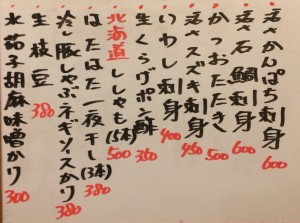 活さかんぱち刺身 600
活さ石鯛刺身 600
かつおたたき 500
活さスズキ刺身 450
いわし刺身 400
生くらげポン酢 350
北海道ししゃも(5本) 500
はたはた一夜干し(3本) 380
冷し豚しゃぶネギソースかけ 380
生枝豆 380
水茄子胡麻味噌かけ 300